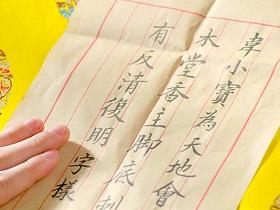 韋小寶為天地會
木堂香主脚底刺
有反清復明
字樣